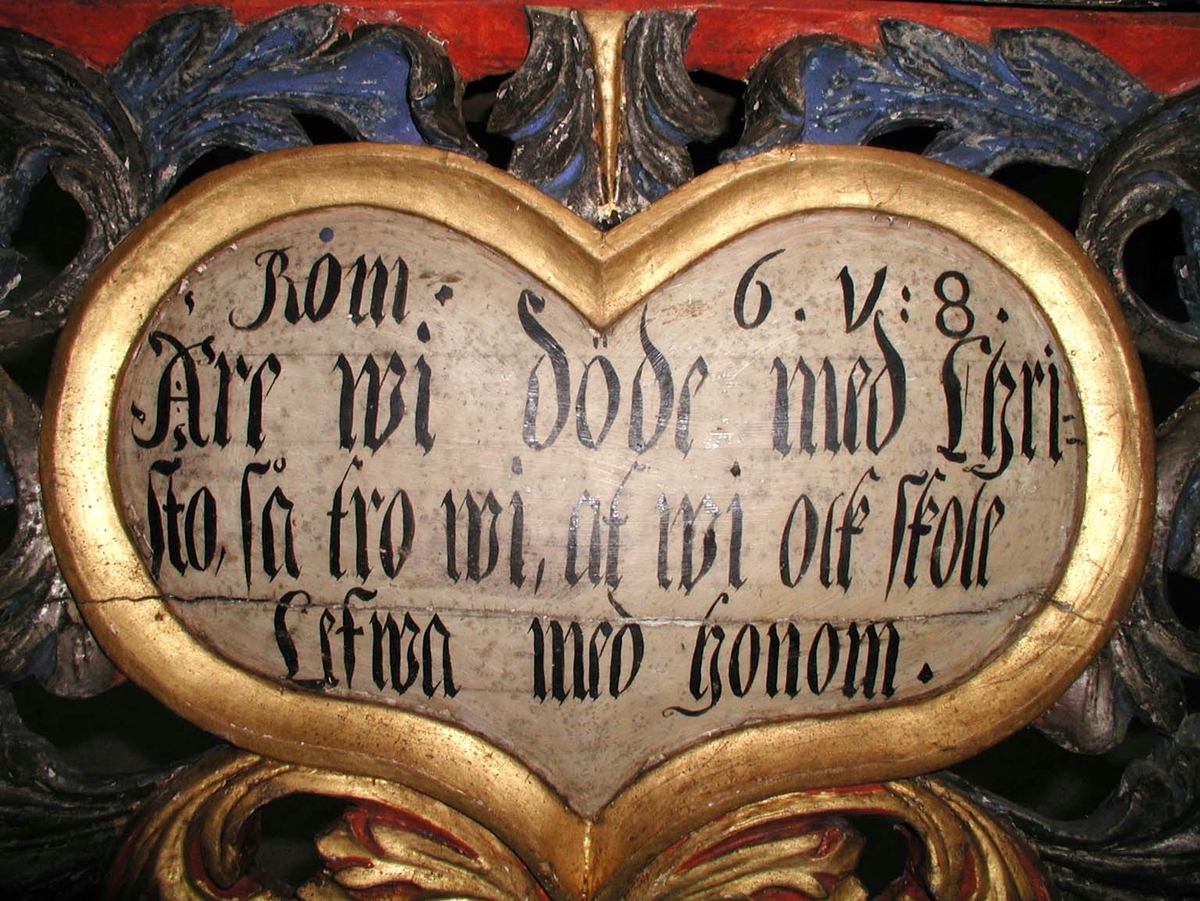 Rom. 6. V: 8.
Äre wi döde med Chri-
sto, så tro wi, at wi ock skole
Lefwa med honom.